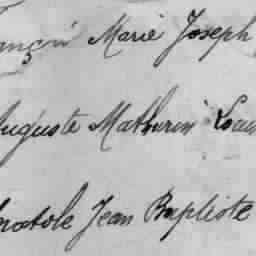 Marie Joseph
Auguste Mathurin Louis
Anatole Jean Baptiste